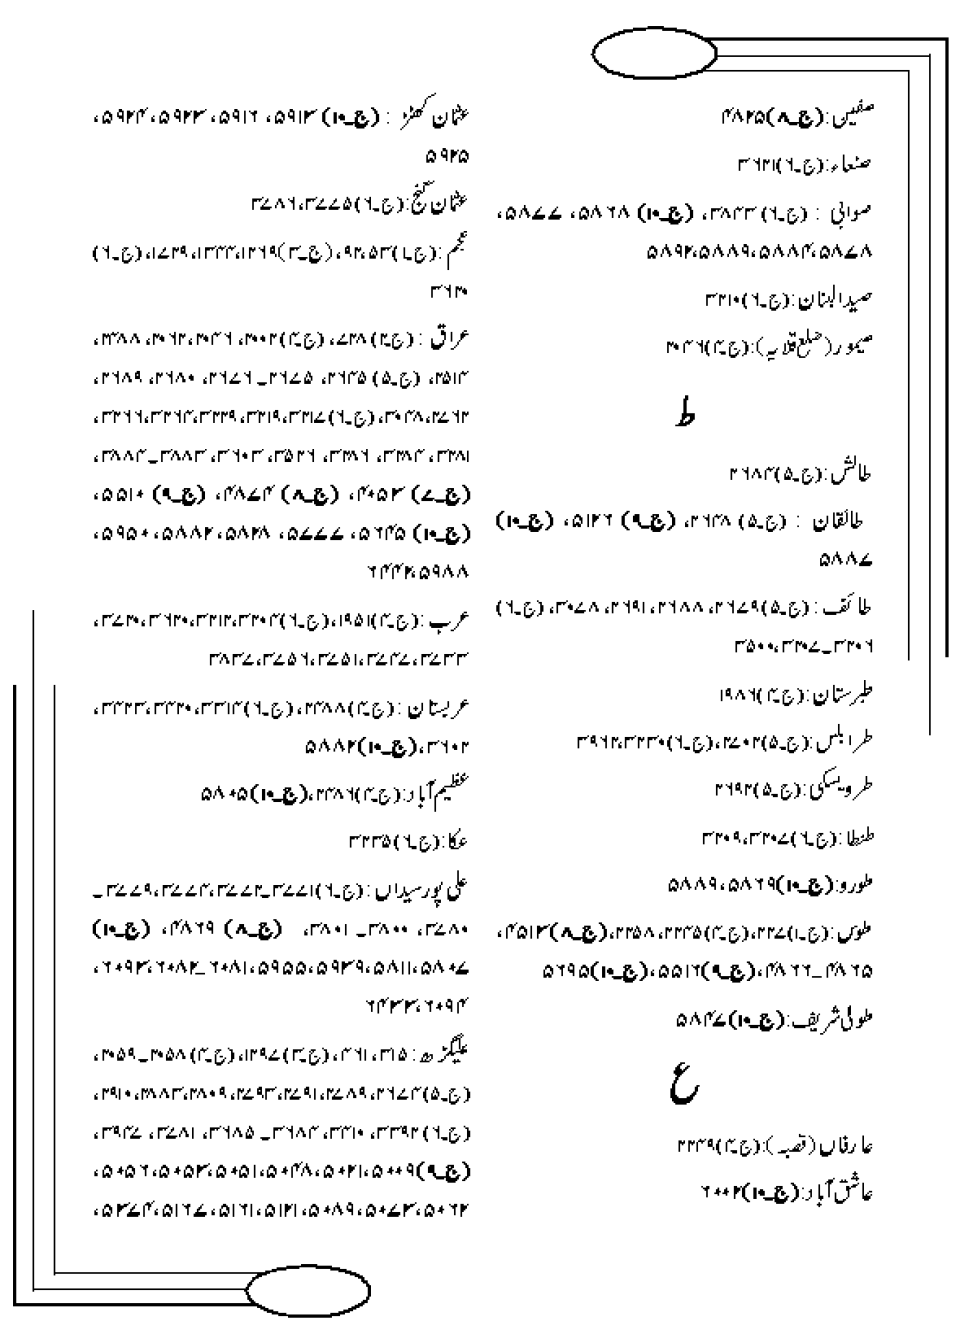 صفین:(ج۔۸)۴۸۲۵
صنعاء:(ج۔۶)۳۶۲۱
صوابی : (ج۔۶)۳۸۴۳، (ج۔۱۰) ۵۸۶۸، ۵۸۷۷،
۵۸۷۸،۵۸۸۴،۵۸۸۹،۵۸۹۲
صیدالبنان:(ج۔۶)۳۲۱۰
صیمور(ضلع قلابہ):(ج۔۴)۲۰۴۶
ط
طالش:(ج۔۵)۲۶۸۴
طالقان : (ج۔۵) ۲۶۴۸، (ج۔۹) ۵۱۲۶، (ج۔۱۰)
۵۸۸۷
طائف:(ج۔۵)۲۶۷۹، ۲۶۸۸، ۲۶۹۱، ۳۰۷۸، (ج۔۶)
۳۲۰۶۔۳۲۰۷،۳۵۰۰
طبرستان:(ج۔۴)۱۹۸۶
طرابلس:(ج۔۵)۲۷۰۲،(ج۔۶)۳۲۳۰،۳۹۶۲
طرویسکی:(ج۔۵)۲۶۹۲
طنطا:(ج۔۶)۳۲۰۷،۳۲۰۹
طورو:(ج۔۱۰)۵۸۶۹،۵۸۸۹
طوس:(ج۔۱)۲۲۷،(ج۔۴)۲۲۴۵،۲۲۵۸،(ج۔۸)۴۵۱۳،
۴۸۲۵۔۴۸۶۶،(ج۔۹)۵۵۱۶،(ج۔۱۰)۵۶۹۵
طولی شریف:(ج۔۱۰)۵۸۴۷
ع
عارفاں(قصبہ):(ج۔۴)۲۲۴۹
عاشق آباد:(ج۔۱۰)۶۰۰۲
عثمان کھٹڑ : (ج۔۱۰) ۵۹۱۳، ۵۹۱۶، ۵۹۲۳، ۵۹۲۴،
۵۹۲۵
عثمان گنج:(ج۔۶)۳۷۷۵،۳۷۸۶
عجم:(ج۔۱)۵۳،۹۲،(ج۔۳)۱۲۶۹،۱۳۴۴،۱۷۴۹،(ج۔۶)
۳۶۲۰
عراق : (ج۔۲) ۷۴۸، (ج۔۴) ۲۰۰۲، ۲۰۴۶، ۲۰۶۲، ۲۴۸۸،
۲۵۱۴، (ج۔۵) ۲۶۴۵، ۲۶۷۵۔ ۲۶۷۶، ۲۶۸۰، ۲۶۸۹،
۲۷۶۲، ۳۰۴۸، (ج۔۶)۳۲۱۷، ۳۲۱۹، ۳۲۲۹، ۳۲۶۴، ۳۲۶۶،
۳۲۸۱، ۳۴۸۴، ۳۴۸۶، ۳۵۲۶، ۳۶۰۳، ۳۸۸۳۔۳۸۸۴،
(ج۔۷) ۴۰۵۳، (ج۔۸) ۴۸۷۴، (ج۔۹) ۵۵۱۰،
(ج۔۱۰) ۵۶۴۵، ۵۷۷۷، ۵۸۲۸، ۵۸۸۲، ۵۹۵۰،
۵۹۸۸،۶۴۴۲
عرب:(ج۔۴)۱۹۵۱،(ج۔۶)۳۲۰۴، ۳۲۱۲، ۳۶۲۰، ۳۷۲۰،
۳۷۳۳، ۳۷۴۷، ۳۷۵۱، ۳۷۵۶، ۳۸۳۷
عربستان:(ج۔۴)۲۴۸۸،(ج۔۶)۳۳۱۴، ۳۴۲۰، ۳۴۲۳،
۳۶۰۲،(ج۔۱۰)۵۸۸۲
عظیم آباد:(ج۔۴)۲۴۸۶،(ج۔۱۰)۵۸۰۵
عکا:(ج۔۶)۳۲۳۵
علی پور سیداں:(ج۔۶)۳۷۷۱۔۳۷۷۲، ۳۷۷۴، ۳۷۷۹۔
۳۷۸۰، ۳۸۰۰۔ ۳۸۰۱، (ج۔۸) ۴۸۶۹، (ج۔۱۰)
۵۸۰۷، ۵۸۱۱، ۵۹۳۹، ۵۹۵۵، ۶۰۸۱۔۶۰۸۲، ۶۰۹۳،
۶۰۹۴،۶۴۳۳
علیگڑھ:۳۱۵، ۴۶۱، (ج۔۳)۱۲۹۷، (ج۔۴)۲۰۵۸۔۲۰۵۹،
(ج۔۵)۲۶۷۴، ۲۷۸۹، ۲۷۹۱، ۲۷۹۳، ۲۸۰۹، ۲۸۸۳، ۲۹۱۰،
(ج۔۶)۳۳۹۲، ۳۴۱۰، ۳۶۸۴۔ ۳۶۸۵، ۳۷۸۱، ۳۹۴۷،
(ج۔۹)۵۰۰۹، ۵۰۲۱، ۵۰۴۸، ۵۰۵۱، ۵۰۵۳، ۵۰۵۶،
۵۰۶۲، ۵۰۷۳، ۵۰۸۹، ۵۱۲۱، ۵۱۶۱، ۵۱۶۷، ۵۲۷۴،